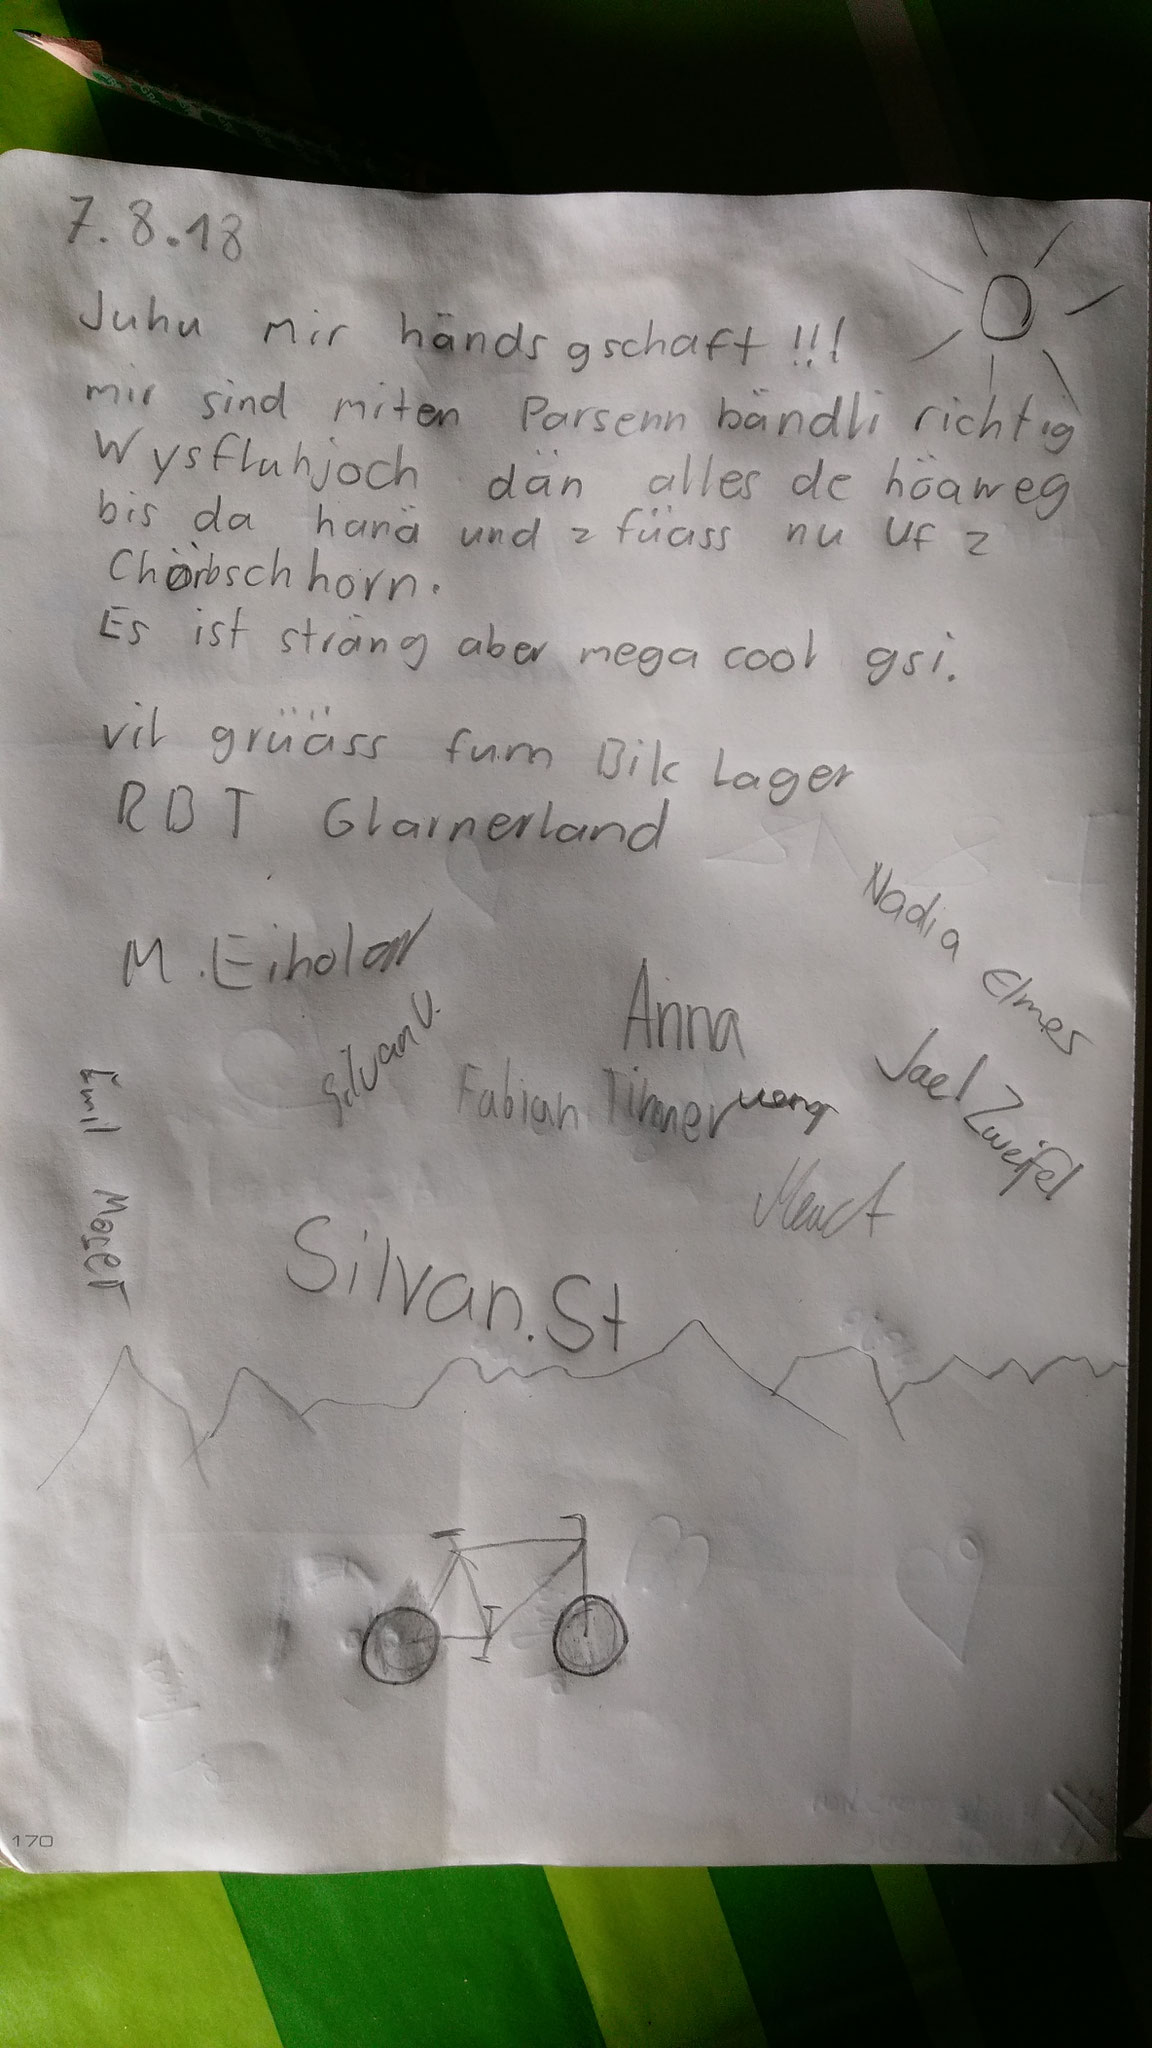 7.8.18
Juhu mir händs gschaft!!!
mir sind miten Parsenn bändli richtig
Wysfluhjoch dän alles de höäweg
bis da harä und z füäss nu uf z
Chörbschhorn.
Es ist sträng aber mega cool gsi.
vil grüäss fum Bik Lager
RBT Glarnerland
Nadia Elmer
M.
Anna
Silvan V.
Jael Zweifel
Fabian
Emil
Silvan.St
170